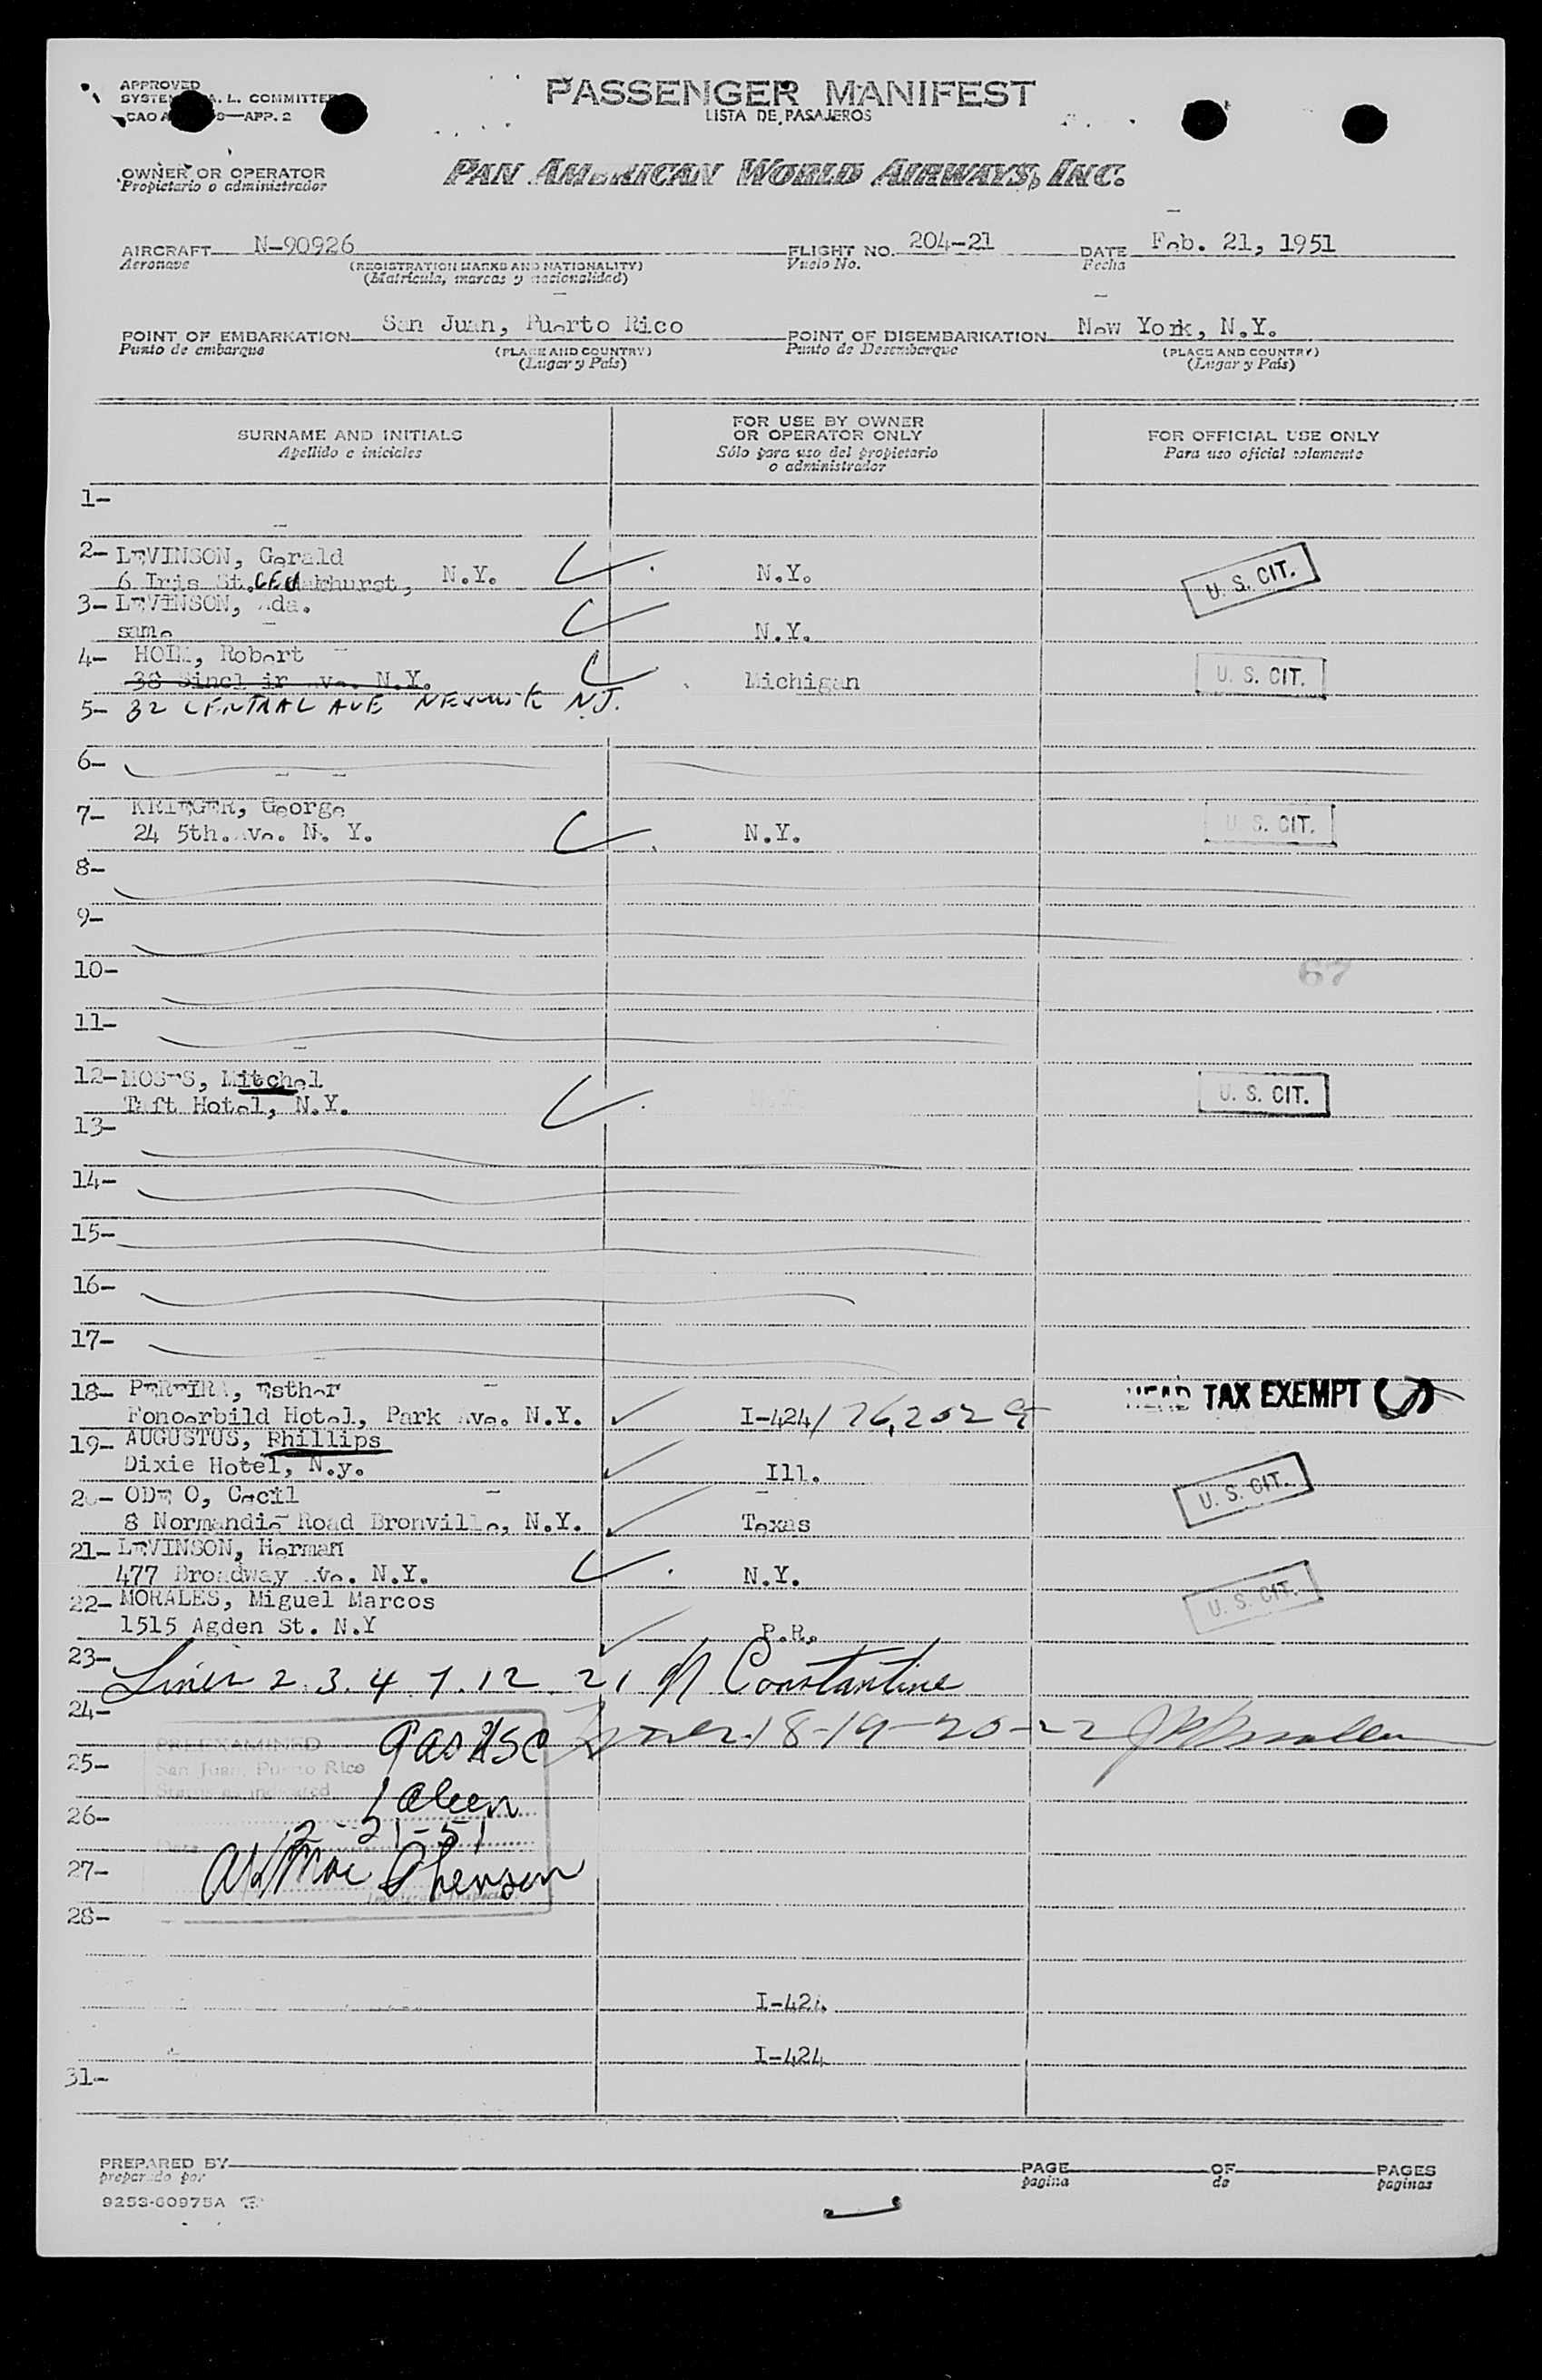 APPROVED
PASSENGER MANIFEST
A. L. COMMITTEE
LISTA DE PASAJEROS
APP. 2
OWNER OR OPERATOR
Propietario o administrador
PAN AMERICAN WORLD AIRWAYS, INC.
AIRCRAFT N-90926 FLIGHT NO. 204-21 DATE Feb. 21, 1951
Aeronave (REGISTRATION MARKS AND NATIONALITY) Vuelo No. Fecha
(Matricula, marcas y nacionalidad)
POINT OF EMBARKATION San Juan, Puerto Rico POINT OF DISEMBARKATION New York, N.Y.
Punto de embarque (PLACE AND COUNTRY) Punto de Desembarque (PLACE AND COUNTRY)
(Lugar y País) (Lugar y País)
SURNAME AND INITIALS
Apellido e iniciales
FOR USE BY OWNER
OR OPERATOR ONLY
Sólo para uso del propietario
o administrador
FOR OFFICIAL USE ONLY
Para uso oficial solamente
1-
2- LEVINSON, Gerald
6 Iris St. N.Y. N.Y. U. S. CIT.
3- LEVINSON, Ada.
same N.Y.
4- HOLM, Robert
38 Sinclair Ave. N.Y. Michigan U. S. CIT.
5- 32 CENTRAL AVE NEWARK NJ.
6-
7- KRIEGER, George
24 5th. Ave. N. Y. N.Y. U. S. CIT.
8-
9-
10- 67
11-
12- MOSES, Mitchel
Taft Hotel, N.Y. U. S. CIT.
13-
14-
15-
16-
17-
18- PEREIRA, Esther
Hotel, Park Ave. N.Y. I-424/ HEAD TAX EXEMPT
19- AUGUSTUS, Phillips
Dixie Hotel, N.y. Ill. U. S. CIT.
20- Cecil
8 Normandie Road Bronville, N.Y. Texas
21- LEVINSON, Herman
477 Broadway Ave. N.Y. N.Y. U. S. CIT.
22- MORALES, Miguel Marcos
1515 Agden St. N.Y P.R.
23- Lines 2. 3. 4 7. 12 21 Constantine
24- 18-19-20-22
PREEXAMINED
25- San Juan, Puerto Rico
Status as indicated
26-
Date 2-21-51
27-
28-
I-424
I-424
31-
PREPARED BY PAGE OF PAGES
preparado por pagina de paginas
9253-60975A